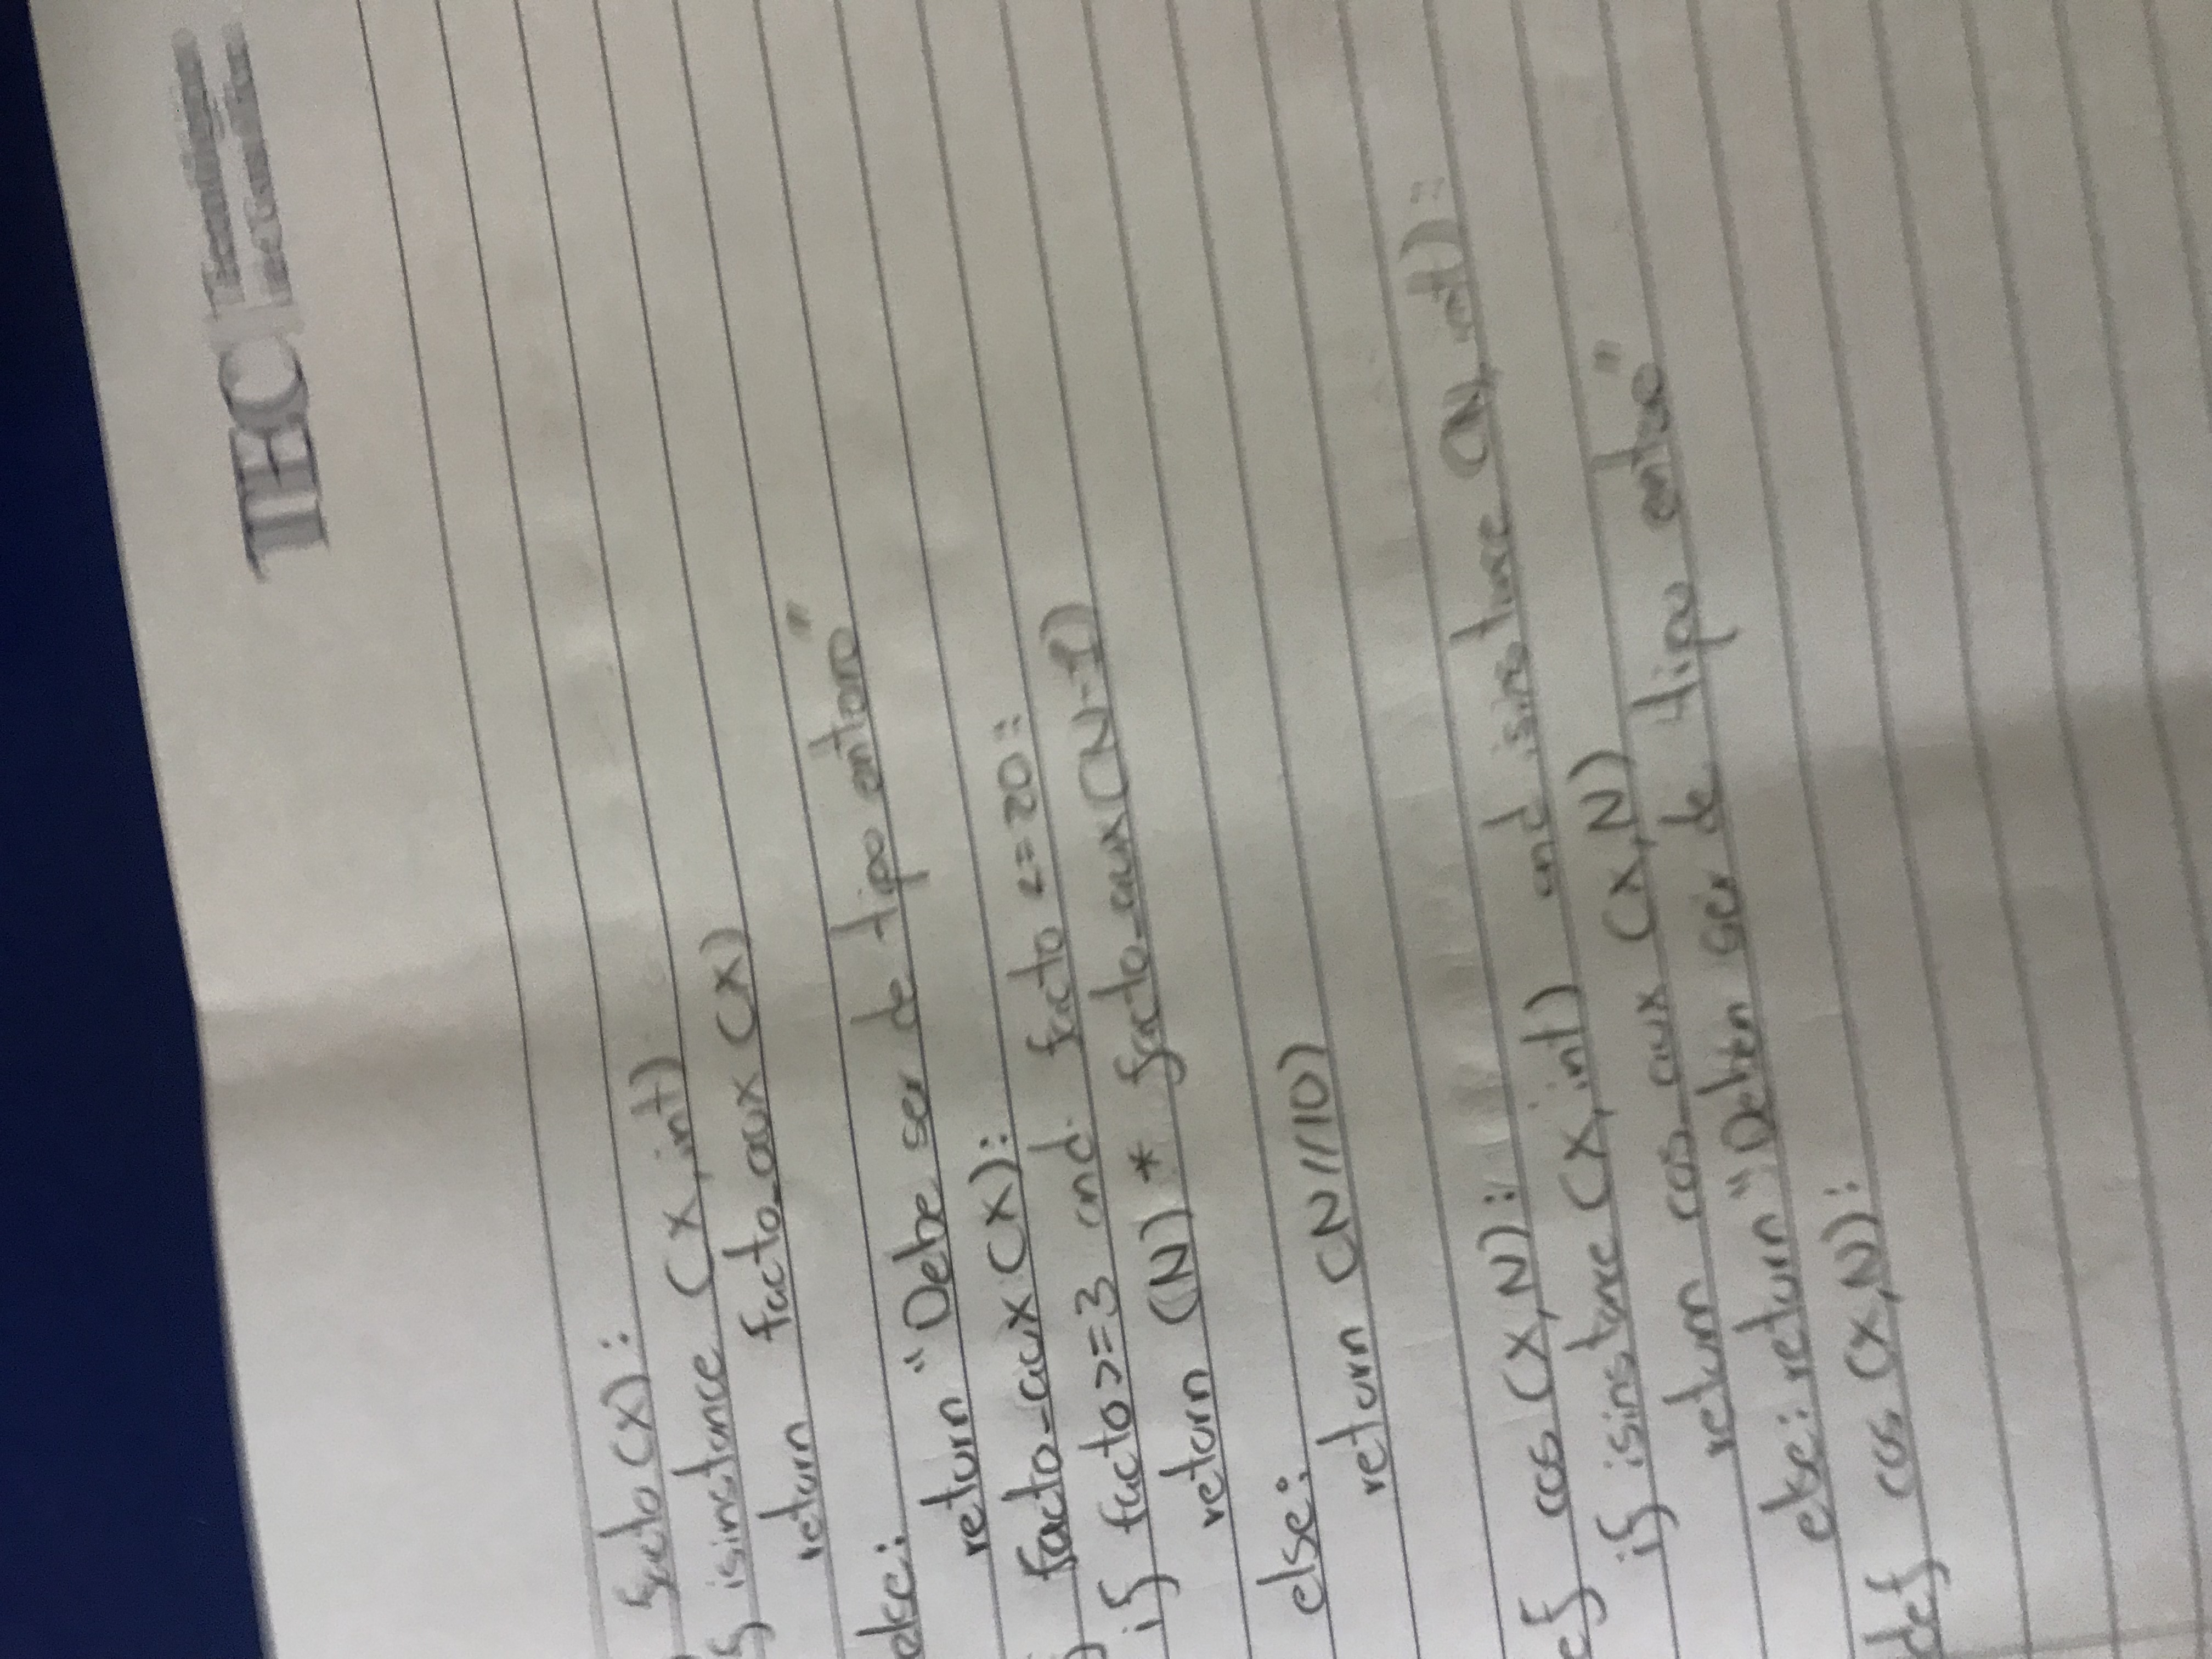 TEC | Tecnológico
de Costa Rica
facto (X):
f isinstance (X, int)
return facto_aux (X)
else:
return "Debe ser de tipo entero"
f facto_aux (X):
if facto >= 3 and facto <= 20:
return (N) * facto_aux (N-1)
else:
return (N//10)
ef cos (X, N):
if isinstance (X, int) and isinstance (N, int):
return cos_aux (X, N)
else: return "Deben ser de tipo entero"
def cos (X, N):